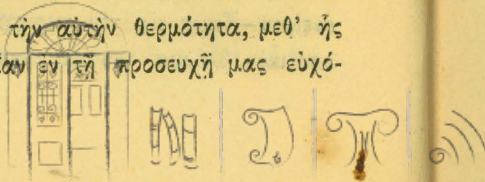 τὴν αὐτὴν θερμότητα, μεθ’ ἧς
ἐν τῇ προσευχῇ μας εὐχό-